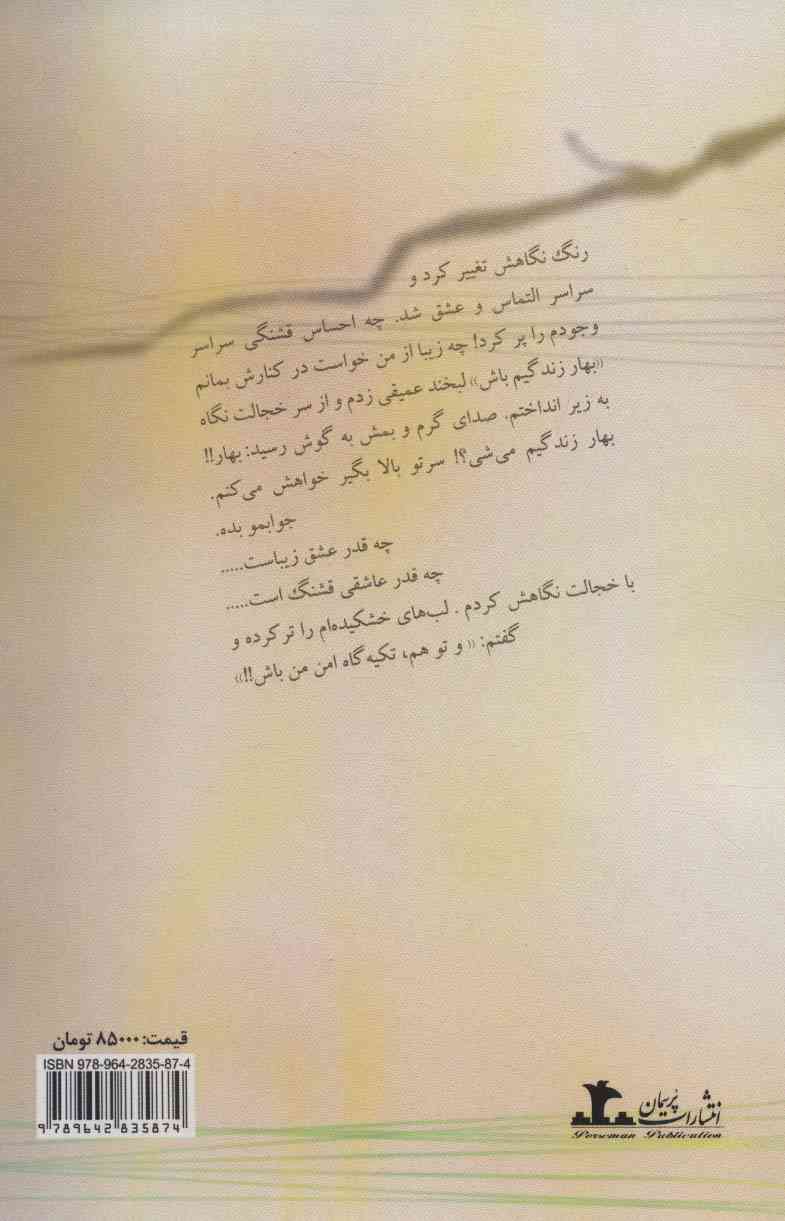 رنگ نگاهش تغییر کرد و
سراسر التماس و عشق شد. چه احساس قشنگی سراسر
وجودم را پر کرد! چه زیبا از من خواست در کنارش بمانم
«بهار زندگیم باش» لبخند عمیقی زدم و از سر خجالت نگاه
به زیر انداختم. صدای گرم و بمش به گوش رسید: بهار!!
بهار زندگیم می‌شی؟! سرتو بالا بگیر خواهش می‌کنم.
جوابمو بده.
چه قدر عشق زیباست.....
چه قدر عاشقی قشنگ است.....
با خجالت نگاهش کردم. لب‌های خشکیده‌ام را تر کرده و
گفتم: « و تو هم، تکیه‌گاه امن من باش!!»
قیمت: ۸۵۰۰۰ تومان
ISBN 978-964-2835-87-4
9 789642 835874
انتشارات پُرسمان
Porseman Publication